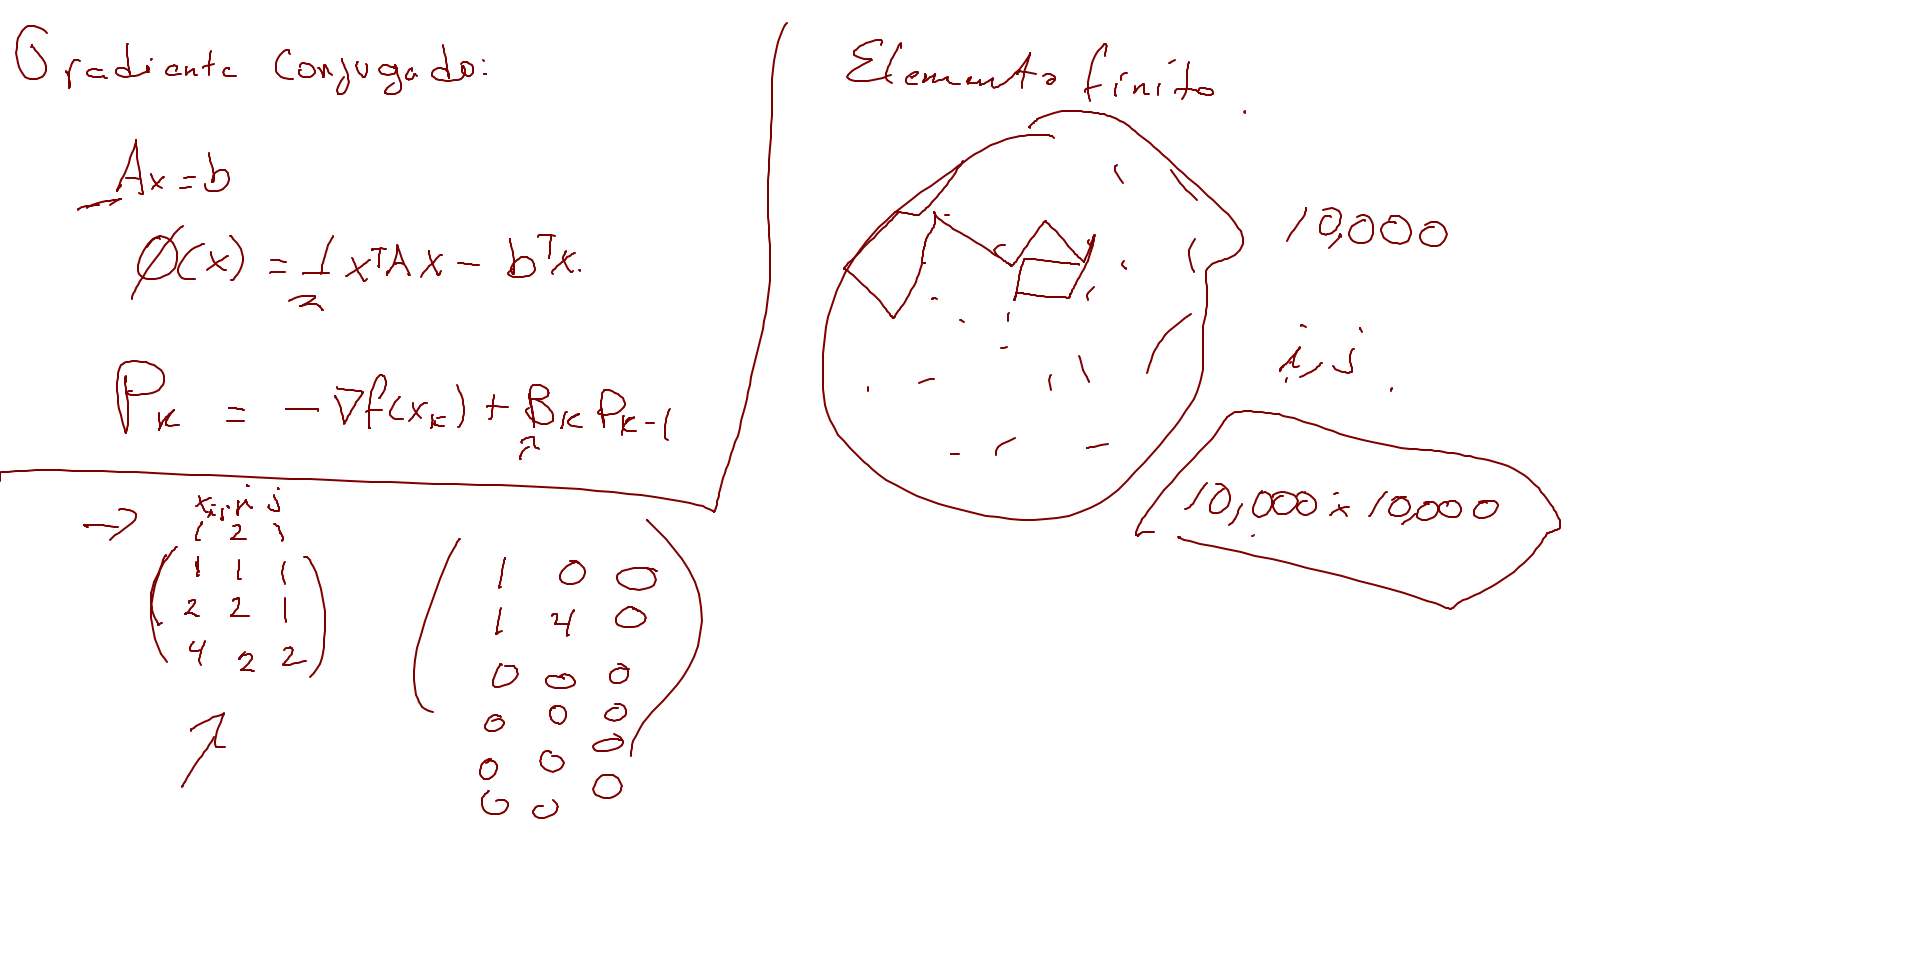 Gradiente Conjugado:
Ax = b
Ø(x) = 1/2 xᵀAx - bᵀx.
Pₖ = - ∇f(xₖ) + Bₖ Pₖ₋₁
→
1 1 1
2 2 1
4 2 2
1 0 0
1 4 0
0 0 0
0 0 0
0 0 0
0 0 0
Elemento finito.
10,000
i,j.
10,000 x 10,000